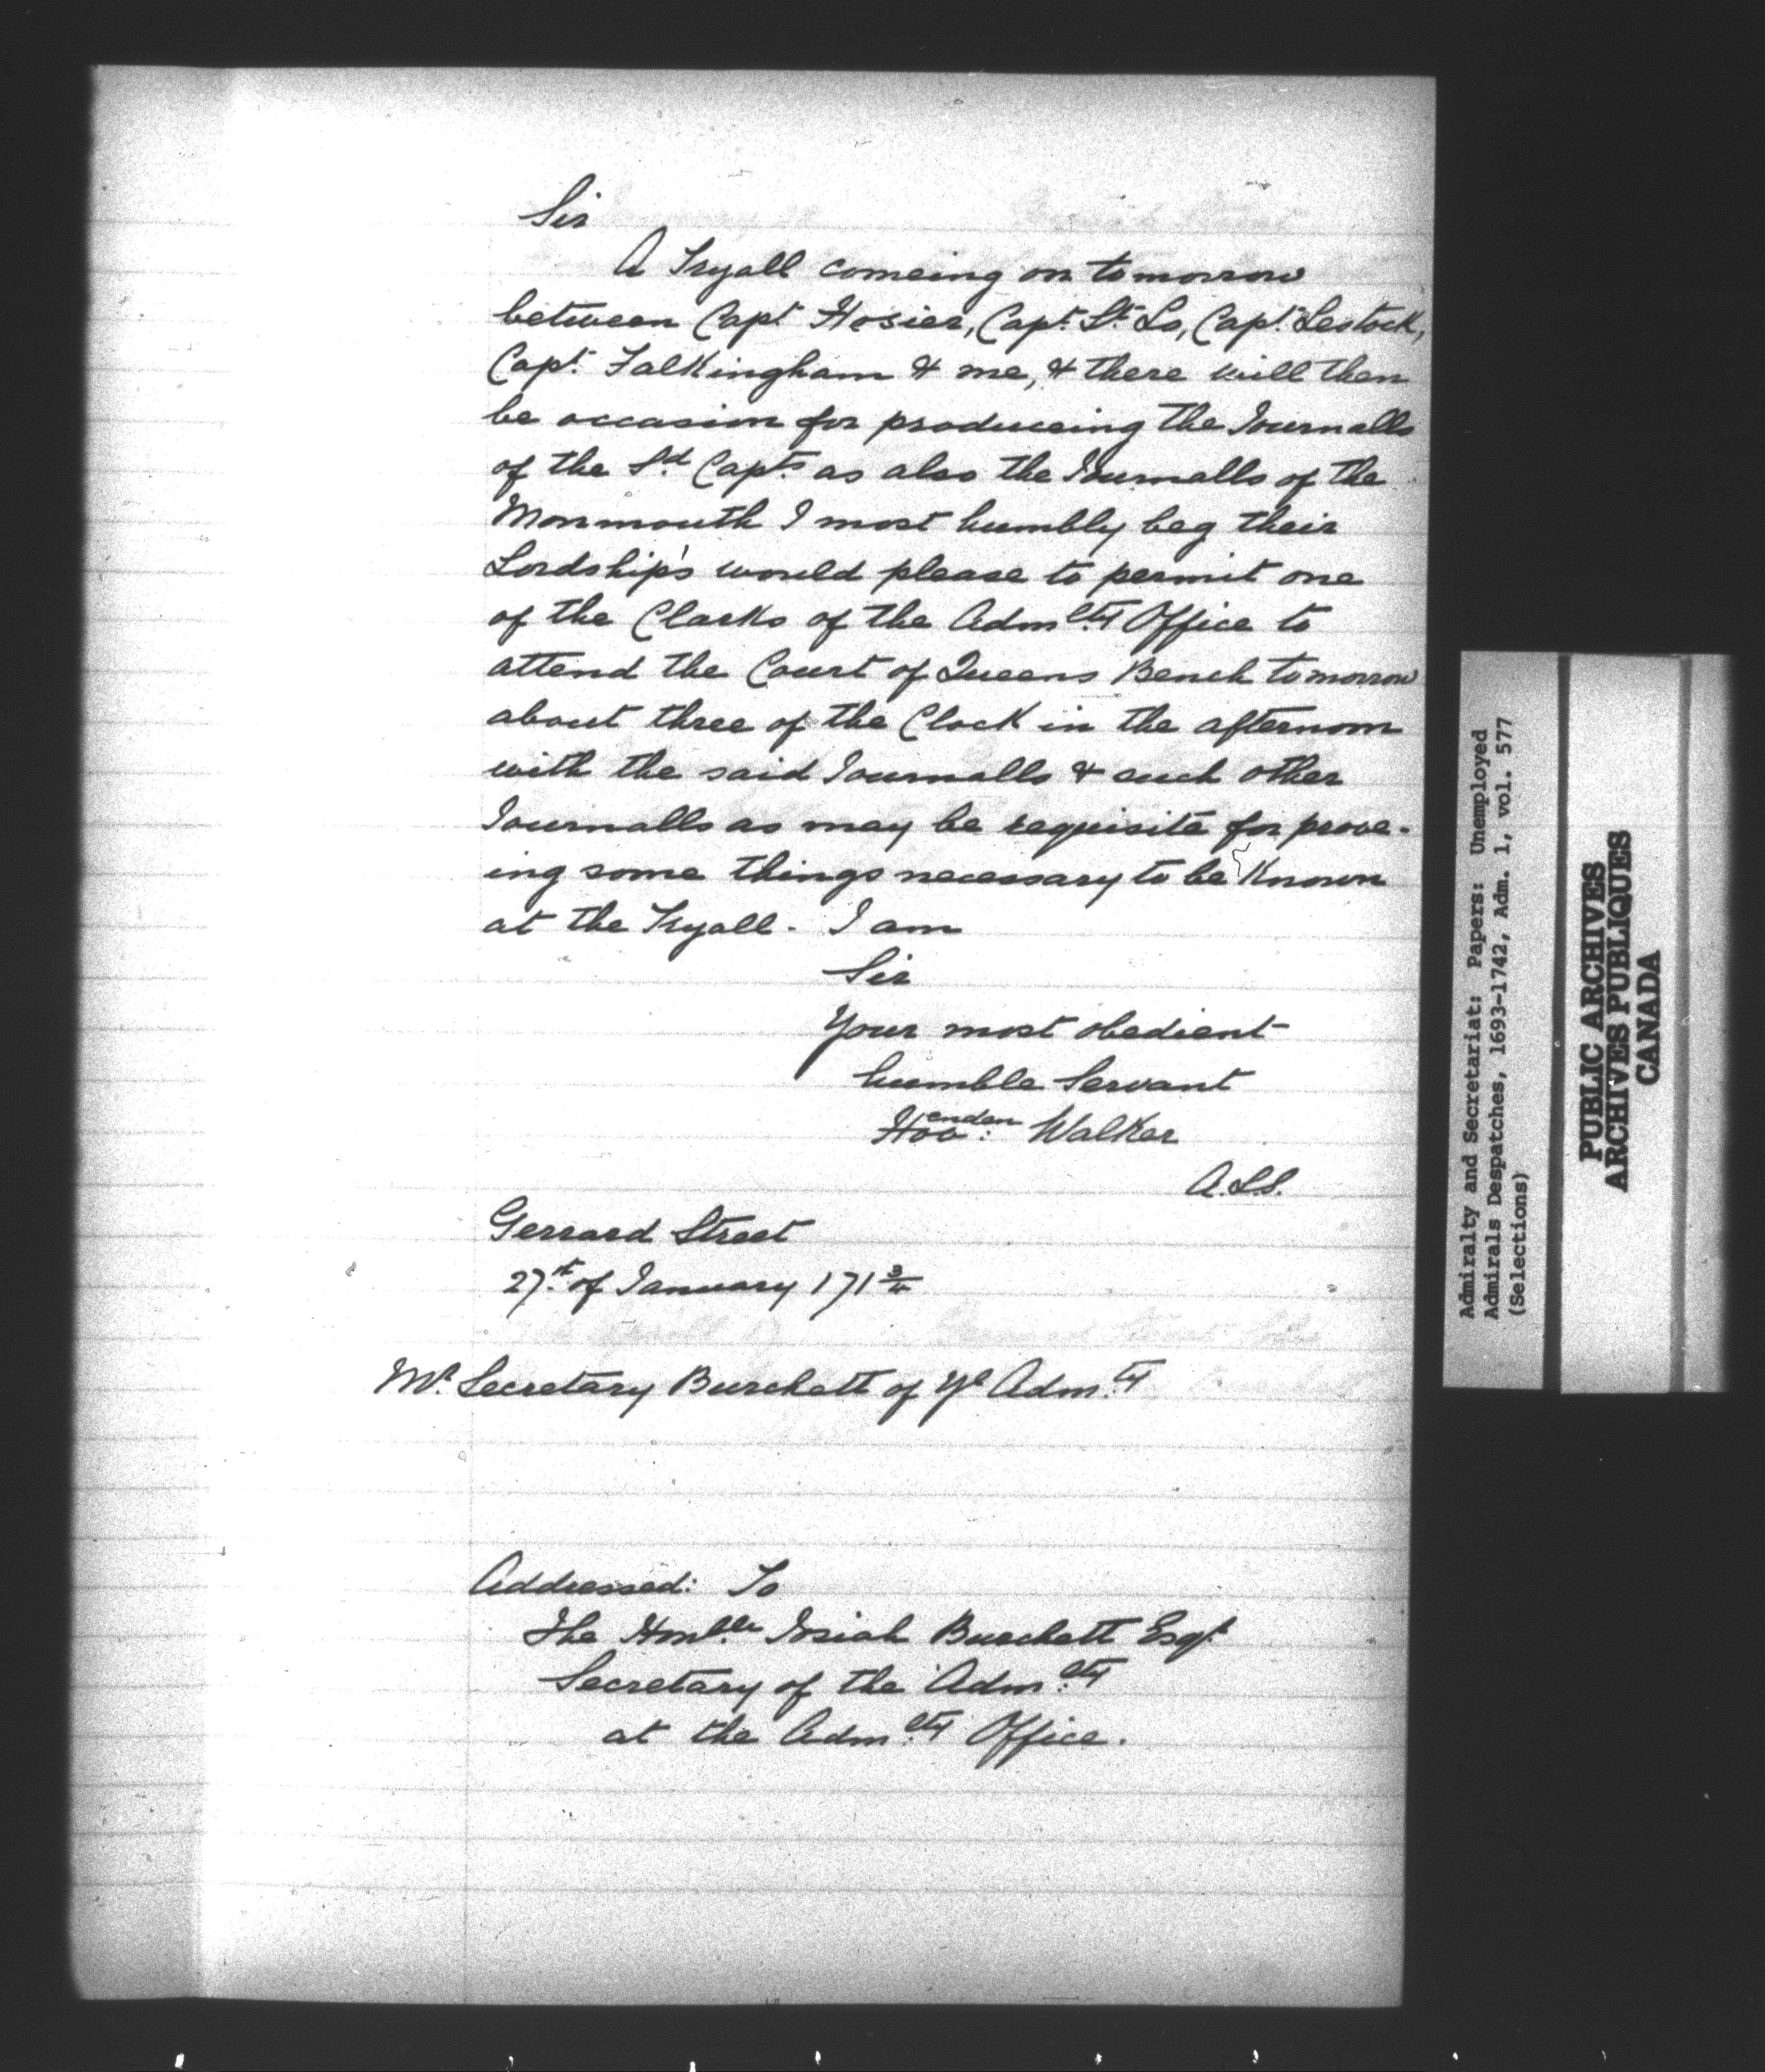 Sir
A Tryall comeing on tomorrow
between Capt Hosier, Capt. St. Lo, Capt. Lestock,
Capt. Falkingham & me, & there will then
be occasion for produceing the Journalls
of the Sd. Capts. as also the Journalls of the
Monmouth I most humbly beg their
Lordship's would please to permit one
of the Clarks of the Admlty Office to
attend the Court of Queens Bench tomorrow
about three of the Clock in the afternoon
with the said Journalls & such other
Journalls as may be requisite for prove-
ing some things necessary to be known
at the Tryall. I am
Sir
Your most obedient
humble Servant
Hovenden: Walker
A.L.S.
Gerrard Street
27th. of January 171 3/4
Mr. Secretary Burchett of ye Adm.ty
Addressed: To
The Honble. Josiah Burchett Esqr.
Secretary of the Adm.lty
at the Adm.lty Office.
Admiralty and Secretariat: Papers: Unemployed
Admirals Despatches, 1693-1742, Adm. 1, vol. 577
(Selections)
PUBLIC ARCHIVES
ARCHIVES PUBLIQUES
CANADA